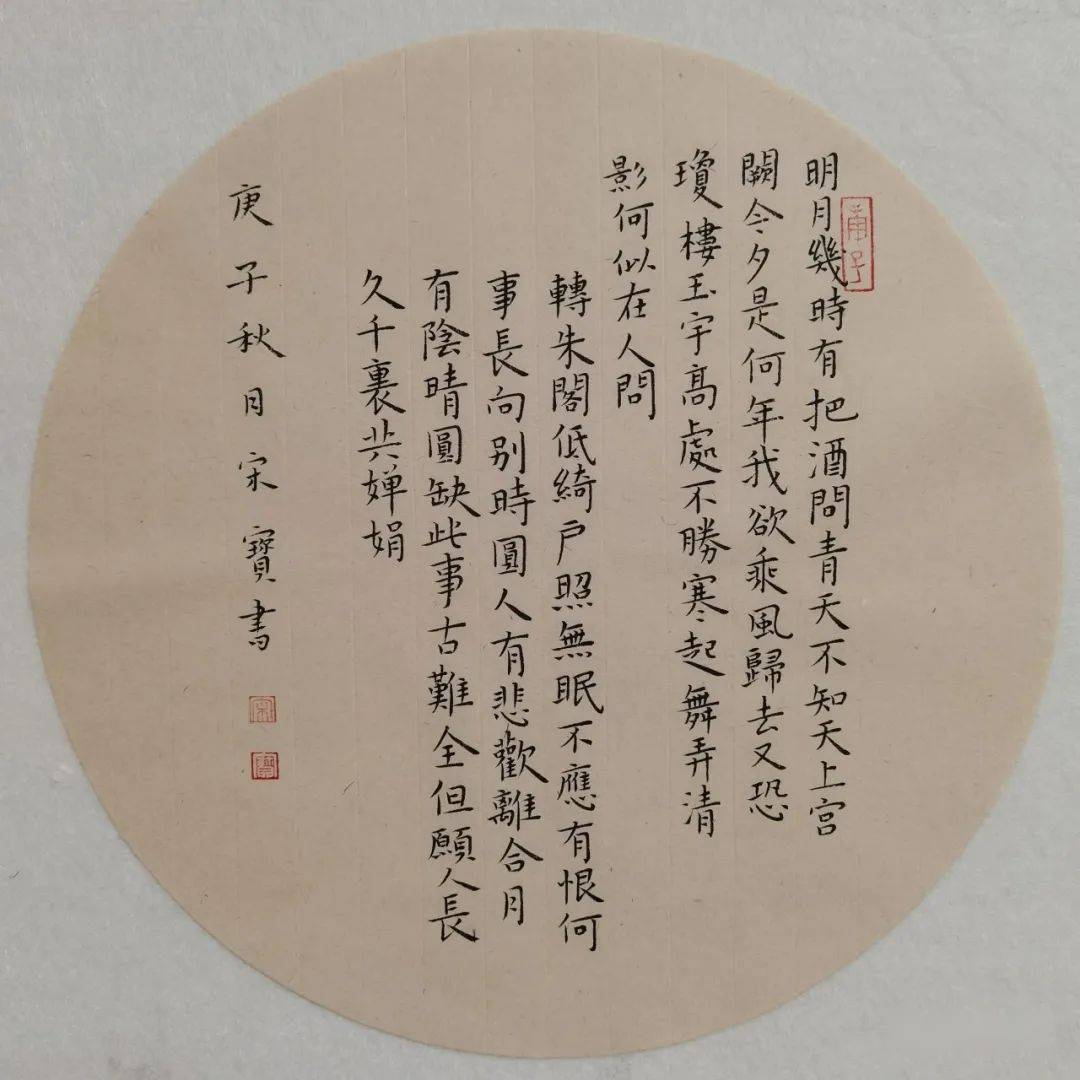 庚子
明月幾時有把酒問青天不知天上宫
闕今夕是何年我欲乘風歸去又恐
瓊樓玉宇髙處不勝寒起舞弄清
影何似在人問
轉朱閣低綺户照無眠不應有恨何
事長向别時圓人有悲歡離合月
有陰晴圓缺此事古難全但願人長
久千裏共婵娟
庚子秋月宋寶書
宋
寶